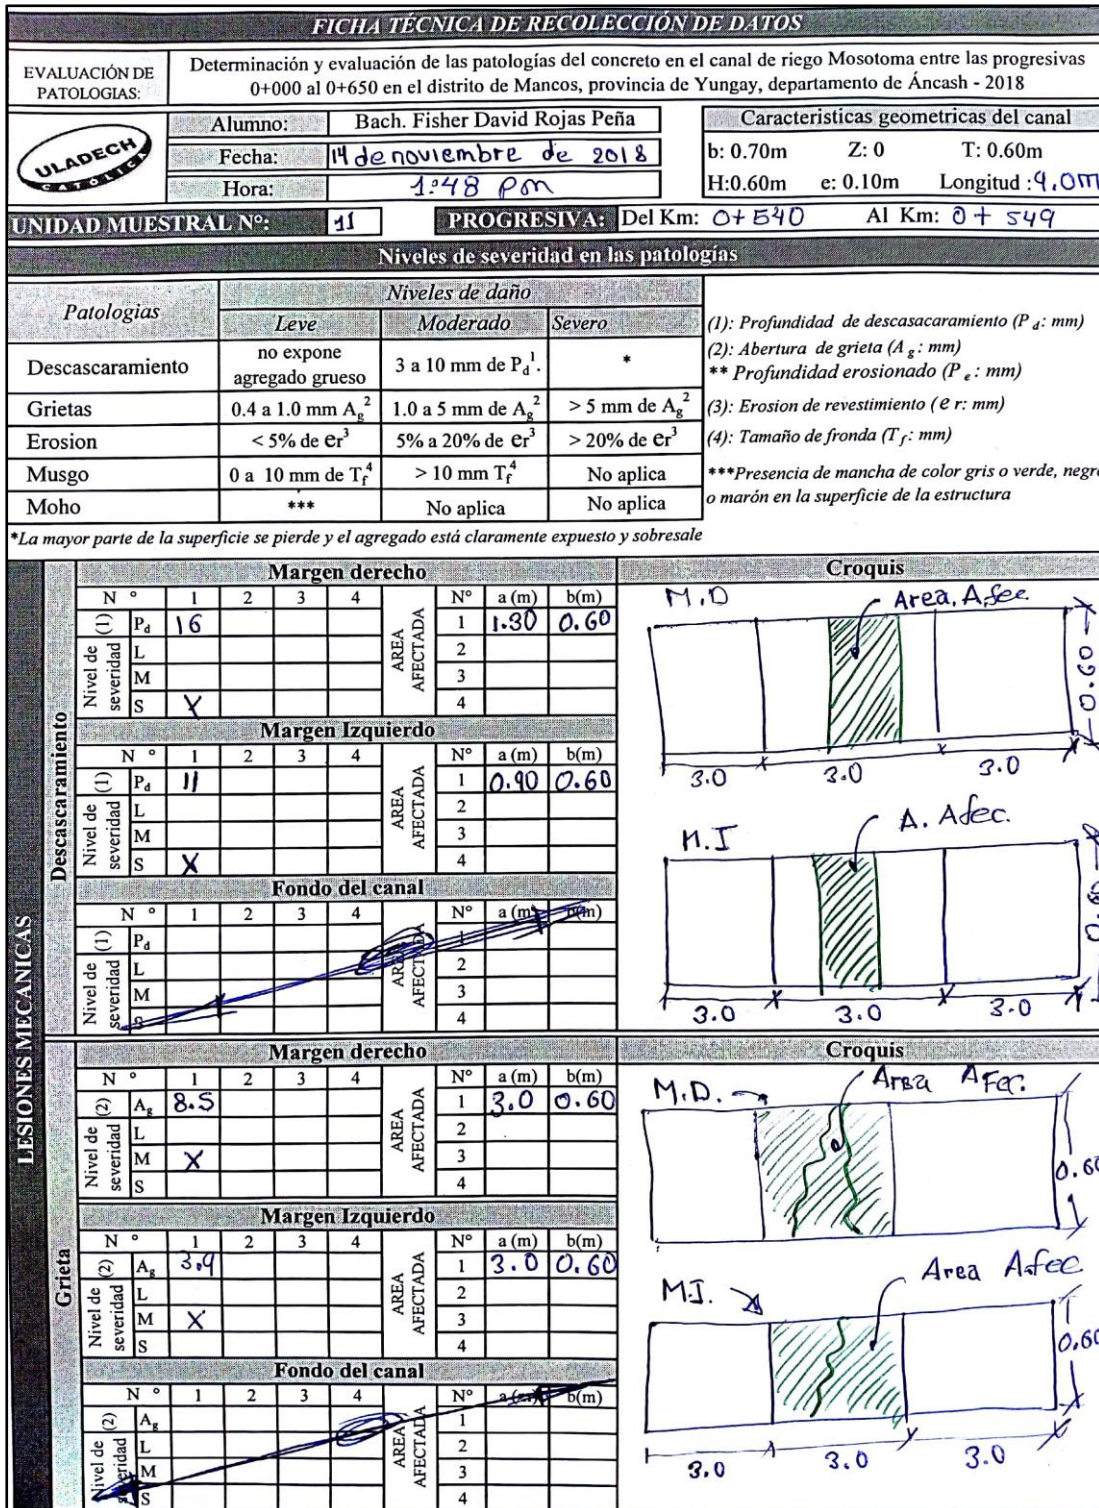 FICHA TÉCNICA DE RECOLECCIÓN DE DATOS
EVALUACIÓN DE PATOLOGIAS:
Determinación y evaluación de las patologías del concreto en el canal de riego Mosotoma entre las progresivas
0+000 al 0+650 en el distrito de Mancos, provincia de Yungay, departamento de Áncash - 2018
ULADECH
CATOLICA
Alumno: Bach. Fisher David Rojas Peña
Fecha: 14 de noviembre de 2018
Hora: 1:48 Pm
Caracteristicas geometricas del canal
b: 0.70m Z: 0 T: 0.60m
H:0.60m e: 0.10m Longitud :9.0m
UNIDAD MUESTRAL N°: 11 PROGRESIVA: Del Km: 0+540 Al Km: 0+549
Niveles de severidad en las patologías
Patologias Niveles de daño
Leve Moderado Severo
Descascaramiento no expone agregado grueso 3 a 10 mm de Pd1. *
Grietas 0.4 a 1.0 mm Ag2 1.0 a 5 mm de Ag2 > 5 mm de Ag2
Erosion < 5% de er3 5% a 20% de er3 > 20% de er3
Musgo 0 a 10 mm de Tf4 > 10 mm Tf4 No aplica
Moho *** No aplica No aplica
(1): Profundidad de descasacaramiento (Pd: mm)
(2): Abertura de grieta (Ag: mm)
** Profundidad erosionado (Pe: mm)
(3): Erosion de revestimiento (er: mm)
(4): Tamaño de fronda (Tf: mm)
***Presencia de mancha de color gris o verde, negro
o marón en la superficie de la estructura
*La mayor parte de la superficie se pierde y el agregado está claramente expuesto y sobresale
LESIONES MECANICAS
Descascaramiento
Margen derecho
N° 1 2 3 4 AREA AFECTADA N° a (m) b(m)
(1) Pd 16 1 1.30 0.60
Nivel de severidad L 2
M 3
S X 4
Margen Izquierdo
N° 1 2 3 4 AREA AFECTADA N° a (m) b(m)
(1) Pd 11 1 0.90 0.60
Nivel de severidad L 2
M 3
S X 4
Fondo del canal
N° 1 2 3 4 AREA AFECTADA N° a (m) b(m)
(1) Pd 1
Nivel de severidad L 2
M 3
S 4
Croquis
M.D Area. Afec
0.60
3.0 3.0 3.0
M.I A. Afec.
0.60
3.0 3.0 3.0
Grieta
Margen derecho
N° 1 2 3 4 AREA AFECTADA N° a (m) b(m)
(2) Ag 8.5 1 3.0 0.60
Nivel de severidad L 2
M X 3
S 4
Margen Izquierdo
N° 1 2 3 4 AREA AFECTADA N° a (m) b(m)
(2) Ag 3.9 1 3.0 0.60
Nivel de severidad L 2
M X 3
S 4
Fondo del canal
N° 1 2 3 4 AREA AFECTADA N° a (m) b(m)
(2) Ag 1
Nivel de severidad L 2
M 3
S 4
Croquis
M.D. Area Afec.
0.60
M.I. Area Afec.
0.60
3.0 3.0 3.0